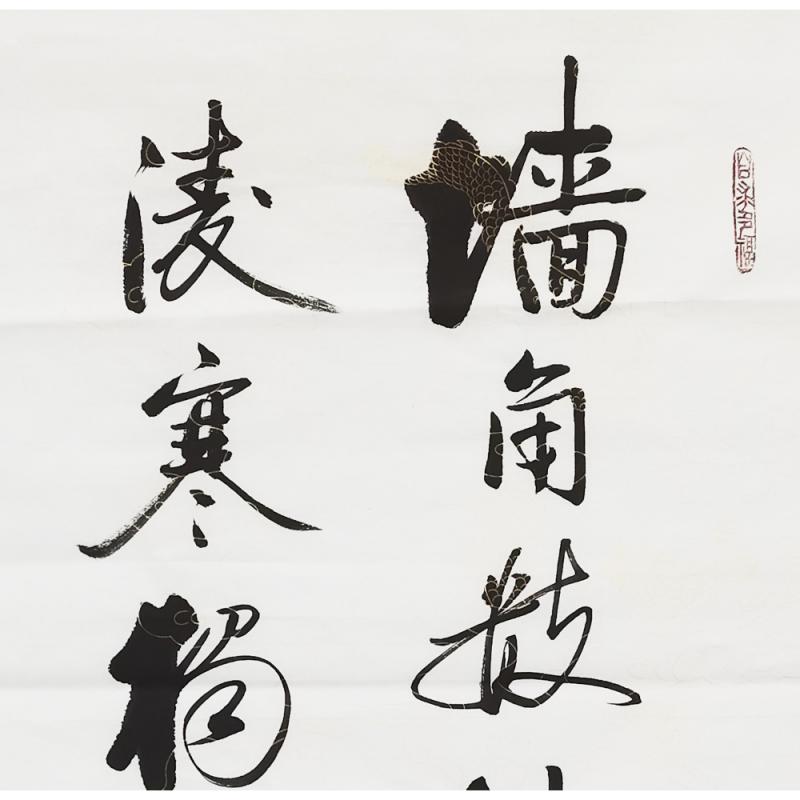 墙角数
凌寒独